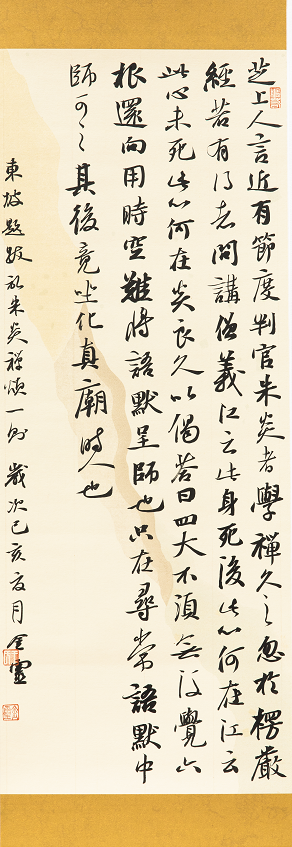 芝上人言近有節度判官朱炎者學禪久之忽於楞嚴
經若有得者問講僧義江云此身死後此心何在江云
此心未死此心何在炎良久以偈答曰四大不須先後覺六
根還向用時空難將語默呈師也只在尋常語默中
師可之其後竟坐化真廟時人也
東坡題跋記朱炎禪頌一則 歲次己亥夏月